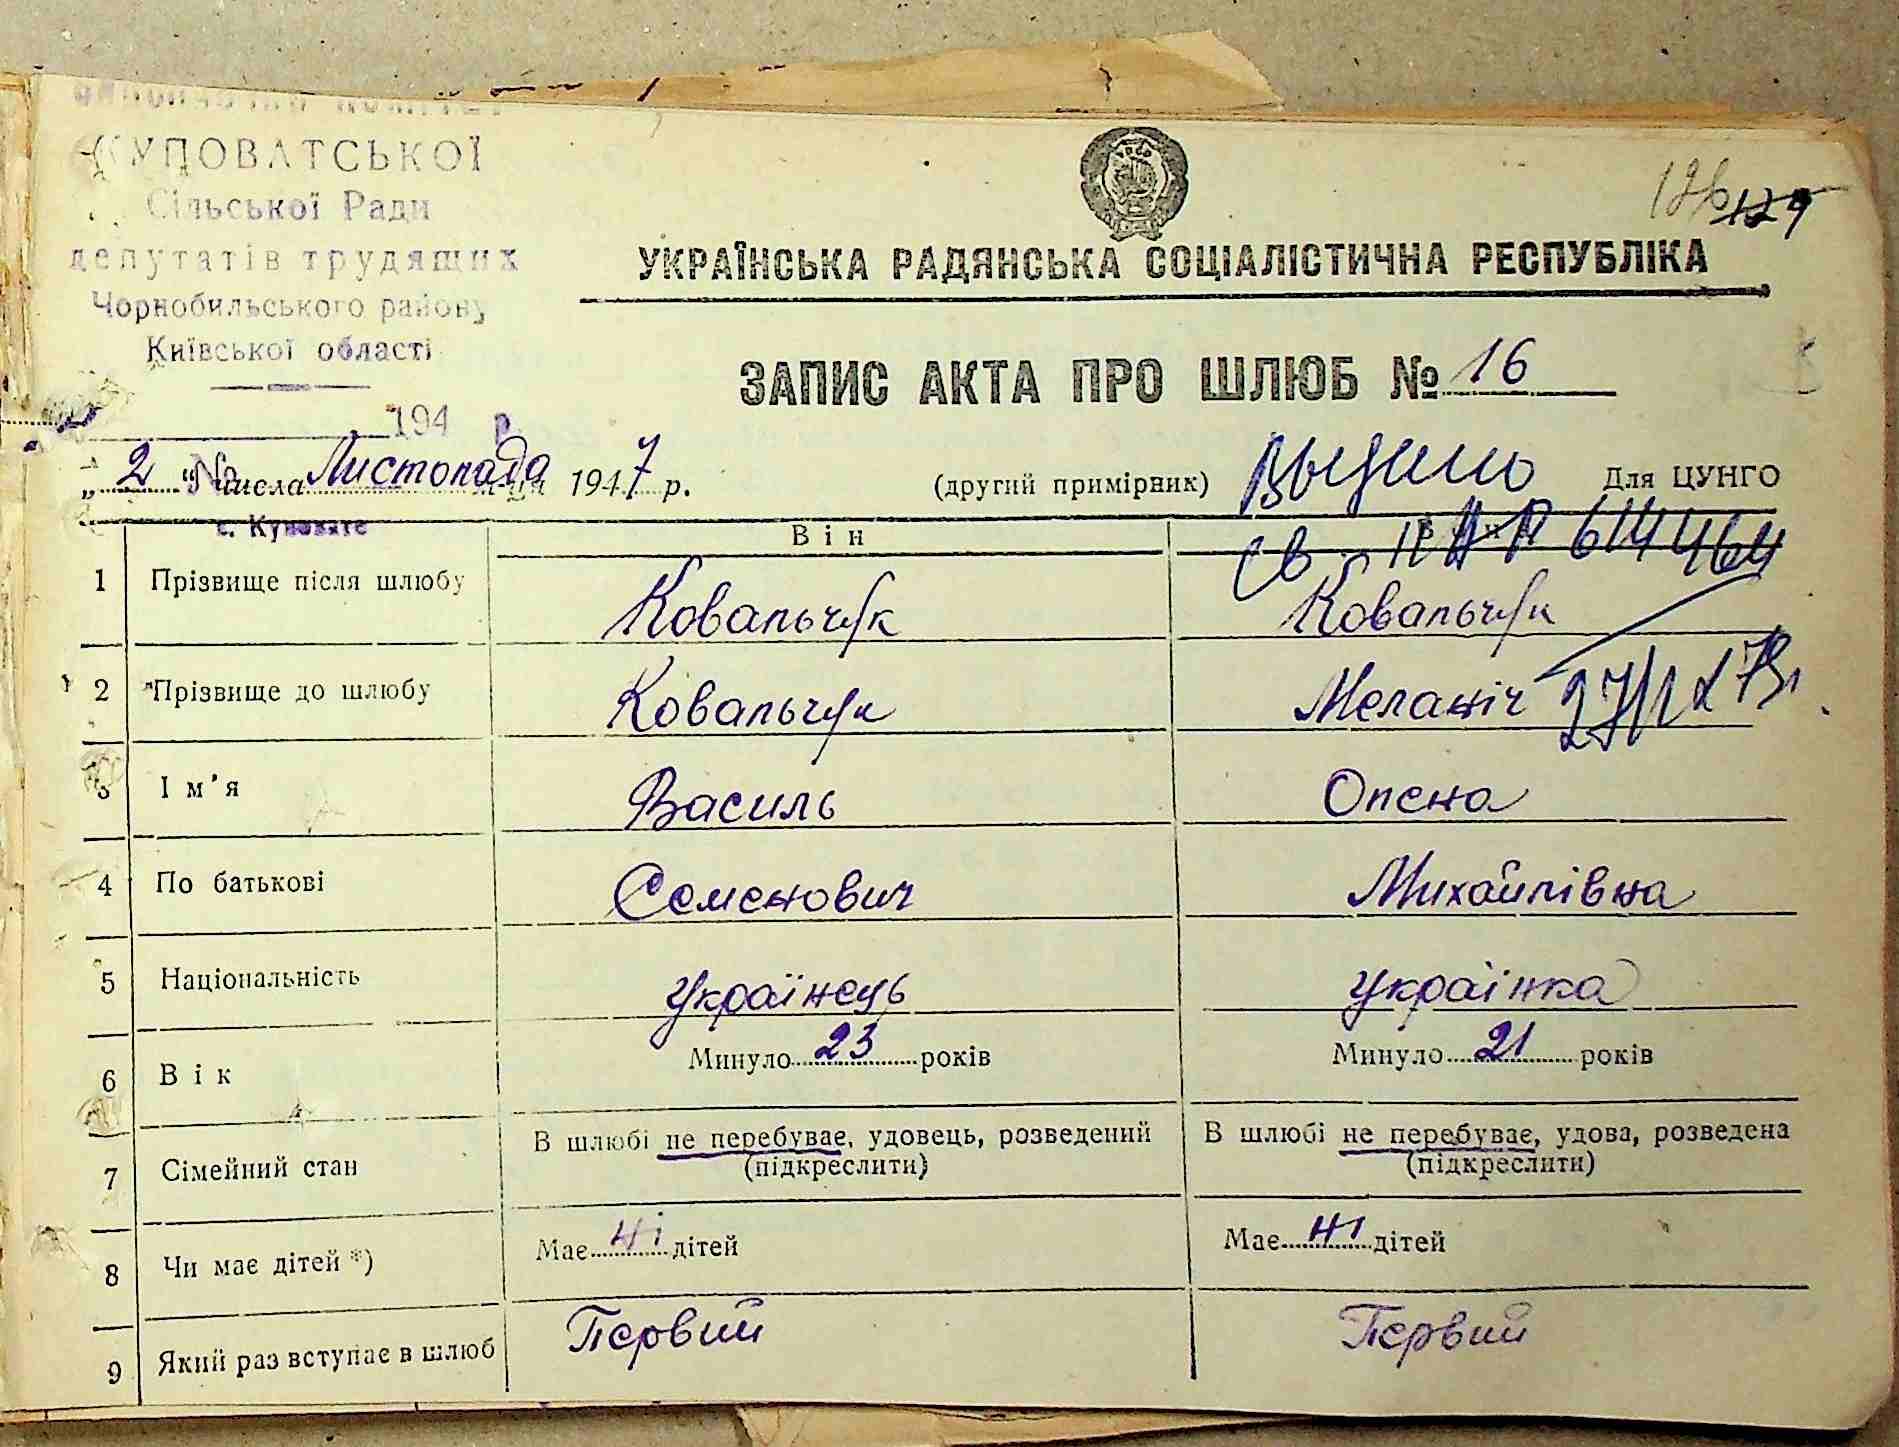 КУПОВАТСЬКОЇ
Сільської Ради
депутатів трудящих
Чорнобильського району
Київської області
194 р.
126 129
УКРАЇНСЬКА РАДЯНСЬКА СОЦІАЛІСТИЧНА РЕСПУБЛІКА
ЗАПИС АКТА ПРО ШЛЮБ № 16
„2“ числа Листопада 1947 р.
(другий примірник)
Выдано
Для ЦУНГО
с. Куповате
Він
св. 614464
1 Прізвище після шлюбу Ковальчук Ковальчук
2 Прізвище до шлюбу Ковальчук Меланіч
3 Ім'я Василь Олена
4 По батькові Семенович Михайлівна
5 Національність Українець Українка
6 Вік Минуло 23 років Минуло 21 років
7 Сімейний стан В шлюбі не перебуває, удовець, розведений В шлюбі не перебуває, удова, розведена
(підкреслити) (підкреслити)
8 Чи має дітей *) Має ні дітей Має ні дітей
9 Який раз вступає в шлюб Первий Первий